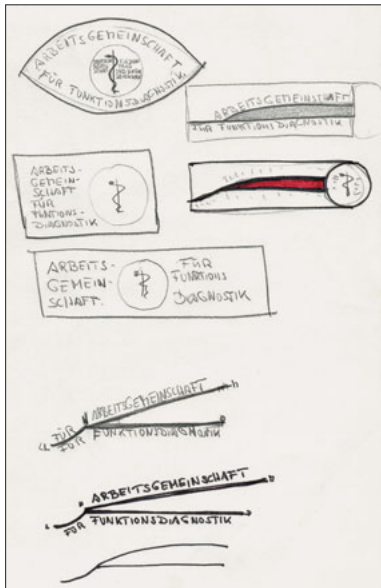 ARBEITSGEMEINSCHAFT
FÜR FUNKTIONSDIAGNOSTIK
ARBEITSGEMEINSCHAFT
FÜR FUNKTIONSDIAGNOSTIK
ARBEITS-
GEMEIN-
SCHAFT
FÜR
FUNTIONS-
DIAGNOSTIK
ARBEITS-
GEMEIN-
SCHAFT
FÜR
FUNKTIONS
DIAGNOSTIK
ARBEITSGEMEINSCHAFT
FÜR
FÜR FUNKTIONSDIAGNOSTIK
ARBEITSGEMEINSCHAFT
FÜR FUNKTIONSDIAGNOSTIK